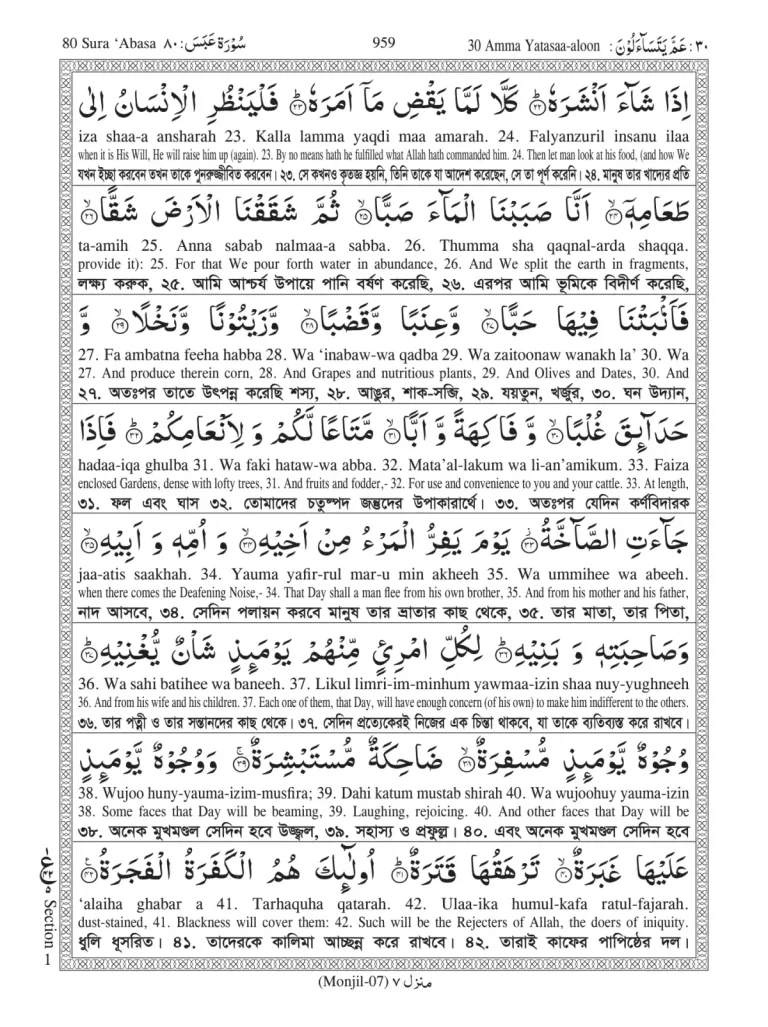 80 Sura ‘Abasa ٨٠: سُوْرَةُ عَبَسَ 959 30 Amma Yatasaa-aloon : عَمَّ يَتَسَآءَلُوْنَ :٣٠
اِذَا شَآءَ اَنْشَرَهٗ ﴿٢٢﴾ كَلَّا لَمَّا يَقْضِ مَآ اَمَرَهٗ ﴿٢٣﴾ فَلْيَنْظُرِ الْاِنْسَانُ اِلٰى
iza shaa-a ansharah 23. Kalla lamma yaqdi maa amarah. 24. Falyanzuril insanu ilaa
when it is His Will, He will raise him up (again). 23. By no means hath he fulfilled what Allah hath commanded him. 24. Then let man look at his food, (and how We
যখন ইচ্ছা করবেন তখন তাকে পুনরুজ্জীবিত করবেন। ২৩. সে কখনও কৃতজ্ঞ হয়নি, তিনি তাকে যা আদেশ করেছেন, সে তা পূর্ণ করেনি। ২৪. মানুষ তার খাদ্যের প্রতি
طَعَامِهٖٓ ﴿٢٤﴾ اَنَّا صَبَبْنَا الْمَآءَ صَبًّا ﴿٢٥﴾ ثُمَّ شَقَقْنَا الْاَرْضَ شَقًّا ﴿٢٦﴾
ta-amih 25. Anna sabab nalmaa-a sabba. 26. Thumma sha qaqnal-arda shaqqa.
provide it): 25. For that We pour forth water in abundance, 26. And We split the earth in fragments,
লক্ষ্য করুক, ২৫. আমি আশ্চর্য উপায়ে পানি বর্ষণ করেছি, ২৬. এরপর আমি ভূমিকে বিদীর্ণ করেছি,
فَاَنْۢبَتْنَا فِيْهَا حَبًّا ﴿٢٧﴾ وَّعِنَبًا وَّقَضْبًا ﴿٢٨﴾ وَّزَيْتُوْنًا وَّنَخْلًا ﴿٢٩﴾ وَّ
27. Fa ambatna feeha habba 28. Wa ‘inabaw-wa qadba 29. Wa zaitoonaw wanakh la’ 30. Wa
27. And produce therein corn, 28. And Grapes and nutritious plants, 29. And Olives and Dates, 30. And
২৭. অতঃপর তাতে উৎপন্ন করেছি শস্য, ২৮. আঙুর, শাক-সব্জি, ২৯. যয়তুন, খর্জুর, ৩০. ঘন উদ্যান,
حَدَآئِقَ غُلْبًا ﴿٣٠﴾ وَّ فَاكِهَةً وَّ اَبًّا ﴿٣١﴾ مَّتَاعًا لَّكُمْ وَ لِاَنْعَامِكُمْ ﴿٣٢﴾ فَاِذَا
hadaa-iqa ghulba 31. Wa faki hataw-wa abba. 32. Mata’al-lakum wa li-an’amikum. 33. Faiza
enclosed Gardens, dense with lofty trees, 31. And fruits and fodder,- 32. For use and convenience to you and your cattle. 33. At length,
৩১. ফল এবং ঘাস ৩২. তোমাদের চতুষ্পদ জন্তুদের উপাকারার্থে। ৩৩. অতঃপর যেদিন কর্ণবিদারক
جَآءَتِ الصَّآخَّةُ ﴿٣٣﴾ يَوْمَ يَفِرُّ الْمَرْءُ مِنْ اَخِيْهِ ﴿٣٤﴾ وَ اُمِّهٖ وَ اَبِيْهِ ﴿٣٥﴾
jaa-atis saakhah. 34. Yauma yafir-rul mar-u min akheeh 35. Wa ummihee wa abeeh.
when there comes the Deafening Noise,- 34. That Day shall a man flee from his own brother, 35. And from his mother and his father,
নাদ আসবে, ৩৪. সেদিন পলায়ন করবে মানুষ তার ভ্রাতার কাছ থেকে, ৩৫. তার মাতা, তার পিতা,
وَصَاحِبَتِهٖ وَ بَنِيْهِ ﴿٣٦﴾ لِكُلِّ امْرِئٍ مِّنْهُمْ يَوْمَئِذٍ شَاْنٌ يُّغْنِيْهِ ﴿٣٧﴾
36. Wa sahi batihee wa baneeh. 37. Likul limri-im-minhum yawmaa-izin shaa nuy-yughneeh
36. And from his wife and his children. 37. Each one of them, that Day, will have enough concern (of his own) to make him indifferent to the others.
৩৬. তার পত্নী ও তার সন্তানদের কাছ থেকে। ৩৭. সেদিন প্রত্যেকেরই নিজের এক চিন্তা থাকবে, যা তাকে ব্যতিব্যস্ত করে রাখবে।
وُجُوْهٌ يَّوْمَئِذٍ مُّسْفِرَةٌ ﴿٣٨﴾ ضَاحِكَةٌ مُّسْتَبْشِرَةٌ ﴿٣٩﴾ وَوُجُوْهٌ يَّوْمَئِذٍ
38. Wujoo huny-yauma-izim-musfira; 39. Dahi katum mustab shirah 40. Wa wujoohuy yauma-izin
38. Some faces that Day will be beaming, 39. Laughing, rejoicing. 40. And other faces that Day will be
৩৮. অনেক মুখমণ্ডল সেদিন হবে উজ্জ্বল, ৩৯. সহাস্য ও প্রফুল্ল। ৪০. এবং অনেক মুখমণ্ডল সেদিন হবে
عَلَيْهَا غَبَرَةٌ ﴿٤٠﴾ تَرْهَقُهَا قَتَرَةٌ ﴿٤١﴾ اُولٰٓئِكَ هُمُ الْكَفَرَةُ الْفَجَرَةُ ﴿٤٢﴾
‘alaiha ghabar a 41. Tarhaquha qatarah. 42. Ulaa-ika humul-kafa ratul-fajarah.
dust-stained, 41. Blackness will cover them: 42. Such will be the Rejecters of Allah, the doers of iniquity.
ধুলি ধূসরিত। ৪১. তাদেরকে কালিমা আচ্ছন্ন করে রাখবে। ৪২. তারাই কাফের পাপিষ্ঠের দল।
Section 1
(Monjil-07) منزل ٧